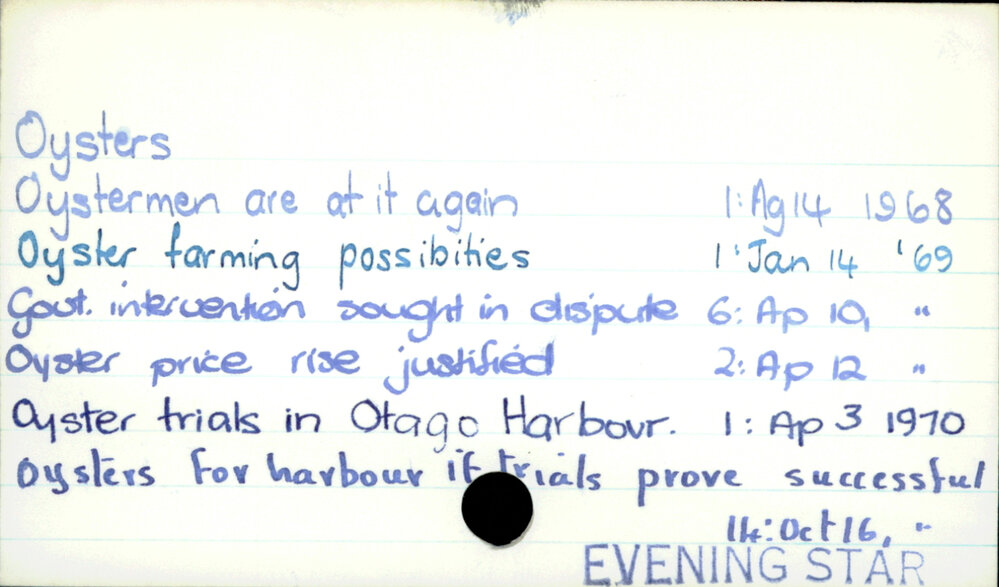 Oysters
Oystermen are at it again 1: Ag 14 1968
Oyster farming possibities 1: Jan 14 '69
Govt. intervention sought in dispute 6: Ap 10, "
Oyster price rise justified 2: Ap 12 "
Oyster trials in Otago Harbour. 1: Ap 3 1970
Oysters for harbour if trials prove successful
14: Oct 16, "
EVENING STAR